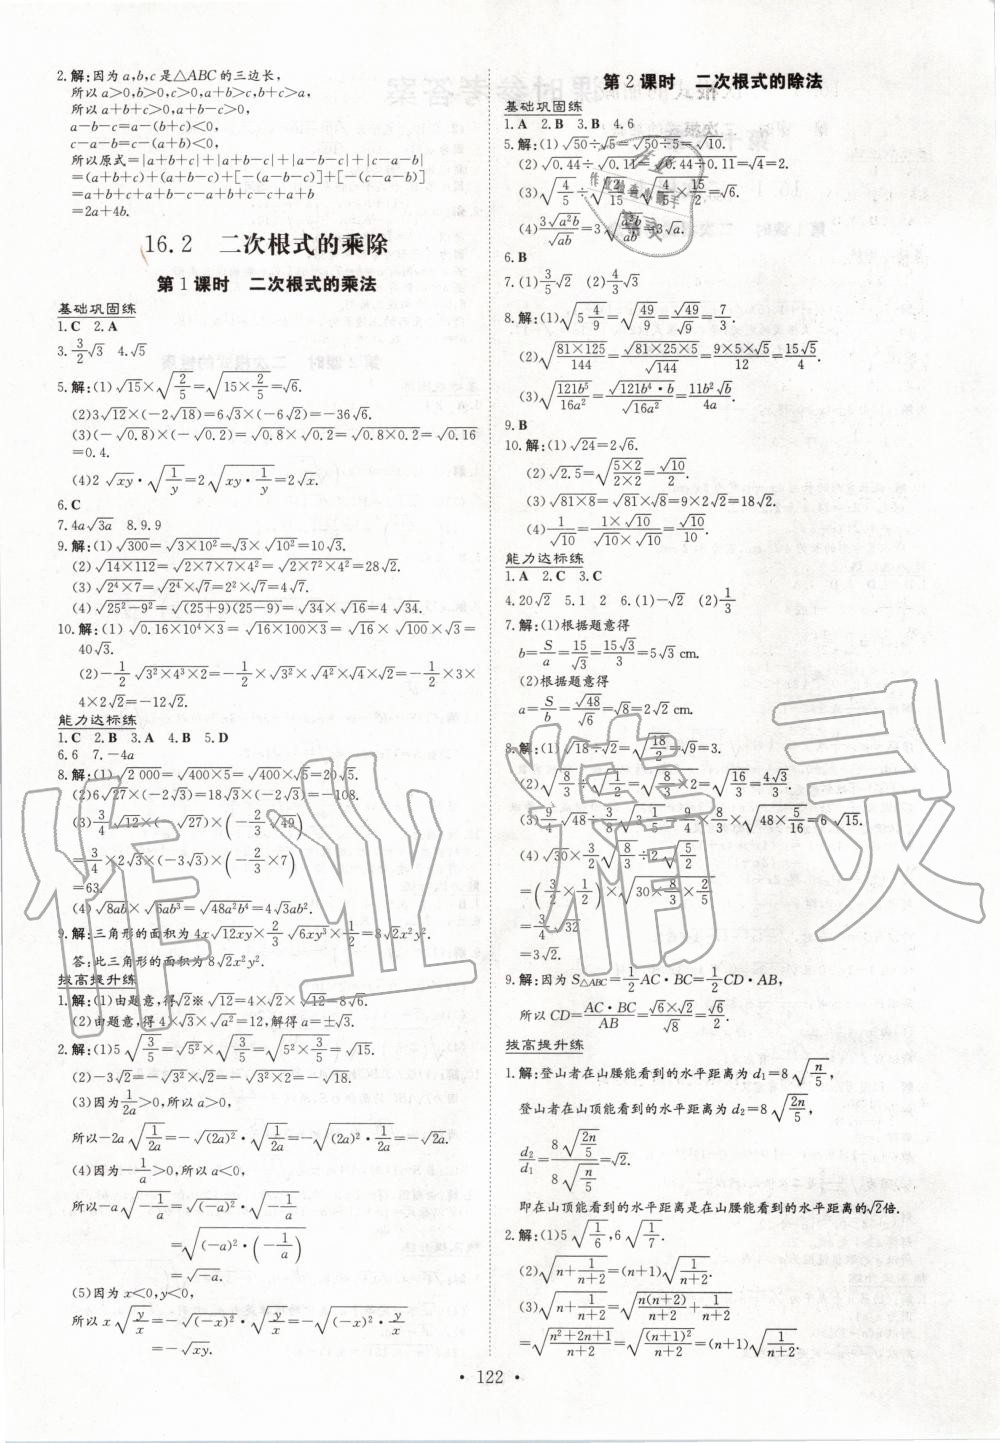 2.解:因为a,b,c是△ABC的三边长,
所以a>0,b>0,c>0,a+b>c,b+c>a,
所以a+b+c>0,a+b-c>0,
a-b-c=a-(b+c)<0,
c-a-b=c-(a+b)<0,
所以原式=|a+b+c|+|a+b-c|+|a-b-c|+|c-a-b|
=(a+b+c)+(a+b-c)+[-(a-b-c)]+[-(c-a-b)]
=a+b+c+a+b-c-a+b+c-c+a+b
=2a+4b.
16.2 二次根式的乘除
第1课时 二次根式的乘法
基础巩固练
1.C 2.A
3.3/2√3 4.√5
5.解:(1)√15×√(2/5)=√(15×2/5)=√6.
(2)3√12×(-2√18)=6√3×(-6√2)=-36√6.
(3)(-√0.8)×(-√0.2)=√0.8×√0.2=√(0.8×0.2)=√0.16
=0.4.
(4)2√(xy)·√(1/y)=2√(xy·1/y)=2√x.
6.C
7.4a√(3a) 8.9.9
9.解:(1)√300=√(3×10²)=√3×√(10²)=10√3.
(2)√(14×112)=√(2×7×7×4²)=√(2×7²×4²)=28√2.
(3)√(2⁴×7)=√(2⁴)×√7=2²×√7=4√7.
(4)√(25²-9²)=√((25+9)(25-9))=√34×√16=4√34.
10.解:(1)√(0.16×10⁴×3)=√(16×100×3)=√16×√100×√3=
40√3.
(2)-1/2√(3²×4³×2)=-1/2×√(3²)×√(4²×4×2)=-1/2×3×
4×2√2=-12√2.
能力达标练
1.C 2.B 3.A 4.B 5.D
6.6 7.-4a
8.解:(1)√2 000=√(400×5)=√400×√5=20√5.
(2)6√27×(-2√3)=18√3×(-2√3)=-108.
(3)3/4√12×(-√27)×(-2/3√49)
=3/4×2√3×(-3√3)×(-2/3×7)
=63.
(4)√(8ab)×√(6ab³)=√(48a²b⁴)=4√3ab².
9.解:三角形的面积为4x√(12xy)×2/3√(6xy³)×1/2=8√2x²y².
答:此三角形的面积为8√2x²y².
拔高提升练
1.解:(1)由题意,得√2※√12=4×√2×√12=8√6.
(2)由题意,得4×√3×√(a²)=12,解得a=±√3.
2.解:(1)5√(3/5)=√(5²)×√(3/5)=√(5²×3/5)=√15.
(2)-3√2=-√(3²)×√2=-√(3²×2)=-√18.
(3)因为1/(2a)>0,所以a>0,
所以-2a√(1/(2a))=-√((2a)²)·√(1/(2a))=-√((2a)²·1/(2a))=-√(2a).
(4)因为-1/a>0,所以a<0,
所以-a√(-1/a)=√((-a)²)·√(-1/a)
=√((-a)²·(-1/a))
=√(-a).
(5)因为x<0,y<0,
所以x√(y/x)=-√((-x)²)·√(y/x)=-√((-x)²·y/x)
=-√(xy).
第2课时 二次根式的除法
基础巩固练
1.A 2.B 3.B 4.6
5.解:(1)√50÷√5=√(50÷5)=√10.
(2)√0.44÷√0.11=√(0.44÷0.11)=√4=2.
(3)√(4/5)÷√(2/15)=√(4/5×15/2)=√6.
(4)3√(a²b)/√(ab)=3√(a²b/ab)=3√a.
6.B
7.(1)3/5√2 (2)4/3√3
8.解:(1)√(5 4/9)=√(49/9)=√49/√9=7/3.
(2)√(81×125/144)=√(81×25×5)/√144=9×5×√5/12=15√5/4.
(3)√(121b⁵/16a²)=√(121b⁴·b)/√(16a²)=11b²√b/4a.
9.B
10.解:(1)√24=2√6.
(2)√2.5=√(5×2/2×2)=√10/2.
(3)√(81×8)=√81×√8=9×2√2=18√2.
(4)1/√10=1×√10/(√10×√10)=√10/10.
能力达标练
1.A 2.C 3.C
4.20√2 5.1 2 6.(1)-√2 (2)1/3
7.解:(1)根据题意得
b=S/a=15/√3=15√3/3=5√3 cm.
(2)根据题意得
a=S/b=√48/√6=√8=2√2 cm.
8.解:(1)√18÷√2=√(18/2)=√9=3.
(2)√(8/3)÷√(1/2)=√(8/3×2)=√(16/3)=4√3/3.
(3)9/4√48÷3/8√(3 1/5)=9/4×8/3×√(48×5/16)=6√15.
(4)√30×3/2√(8/3)÷2√(5/2)
=(3/2×1/2)×√(30×8/3×2/5)
=3/4√32
=3√2.
9.解:因为S△ABC=1/2AC·BC=1/2CD·AB,
所以CD=AC·BC/AB=√6×√2/√8=√6/2.
拔高提升练
1.解:登山者在山腰能看到的水平距离为d₁=8√(n/5),
登山者在山顶能看到的水平距离为d₂=8√(2n/5),
d₂/d₁=8√(2n/5)/8√(n/5)=√2.
即在山顶能看到的水平距离是在山腰能看到的水平距离的√2倍.
2.解:(1)5√(1/6),6√(1/7).
(2)√(n+1/(n+2))=(n+1)√(1/(n+2)).
(3)√(n+1/(n+2))=√(n(n+2)/(n+2)+1/(n+2))
=√((n²+2n+1)/(n+2))=√((n+1)²/(n+2))=(n+1)√(1/(n+2)).
·122·
作业精灵